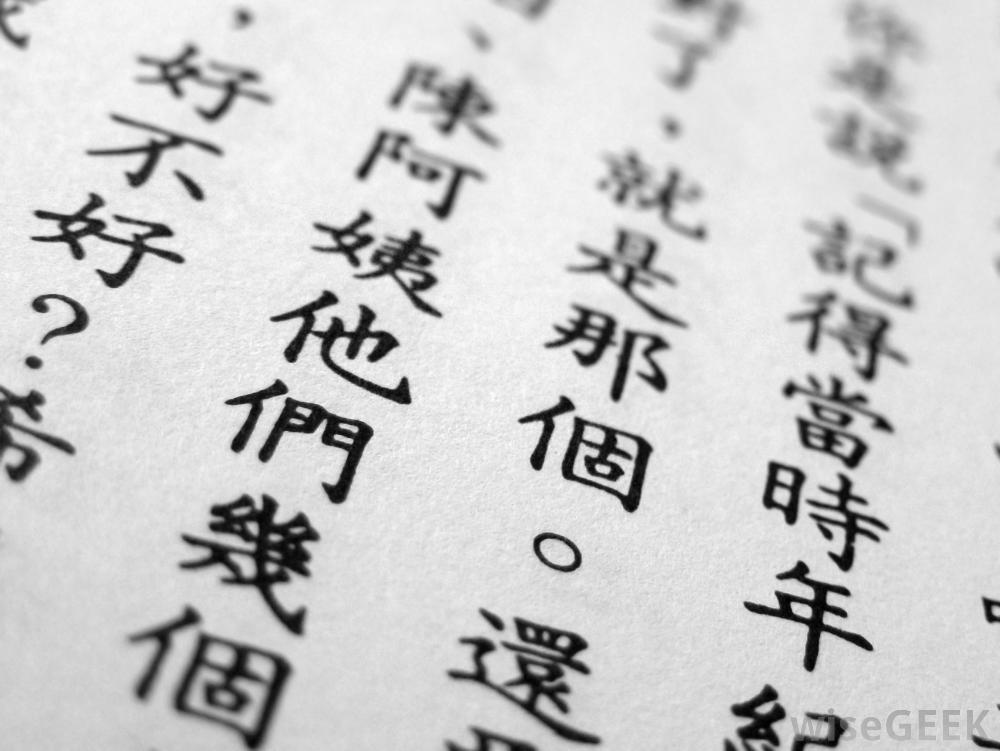 說「記得當時年紀
了，就是那個。還
、陳阿姨他們幾個
，好不好？希
wiseGEEK